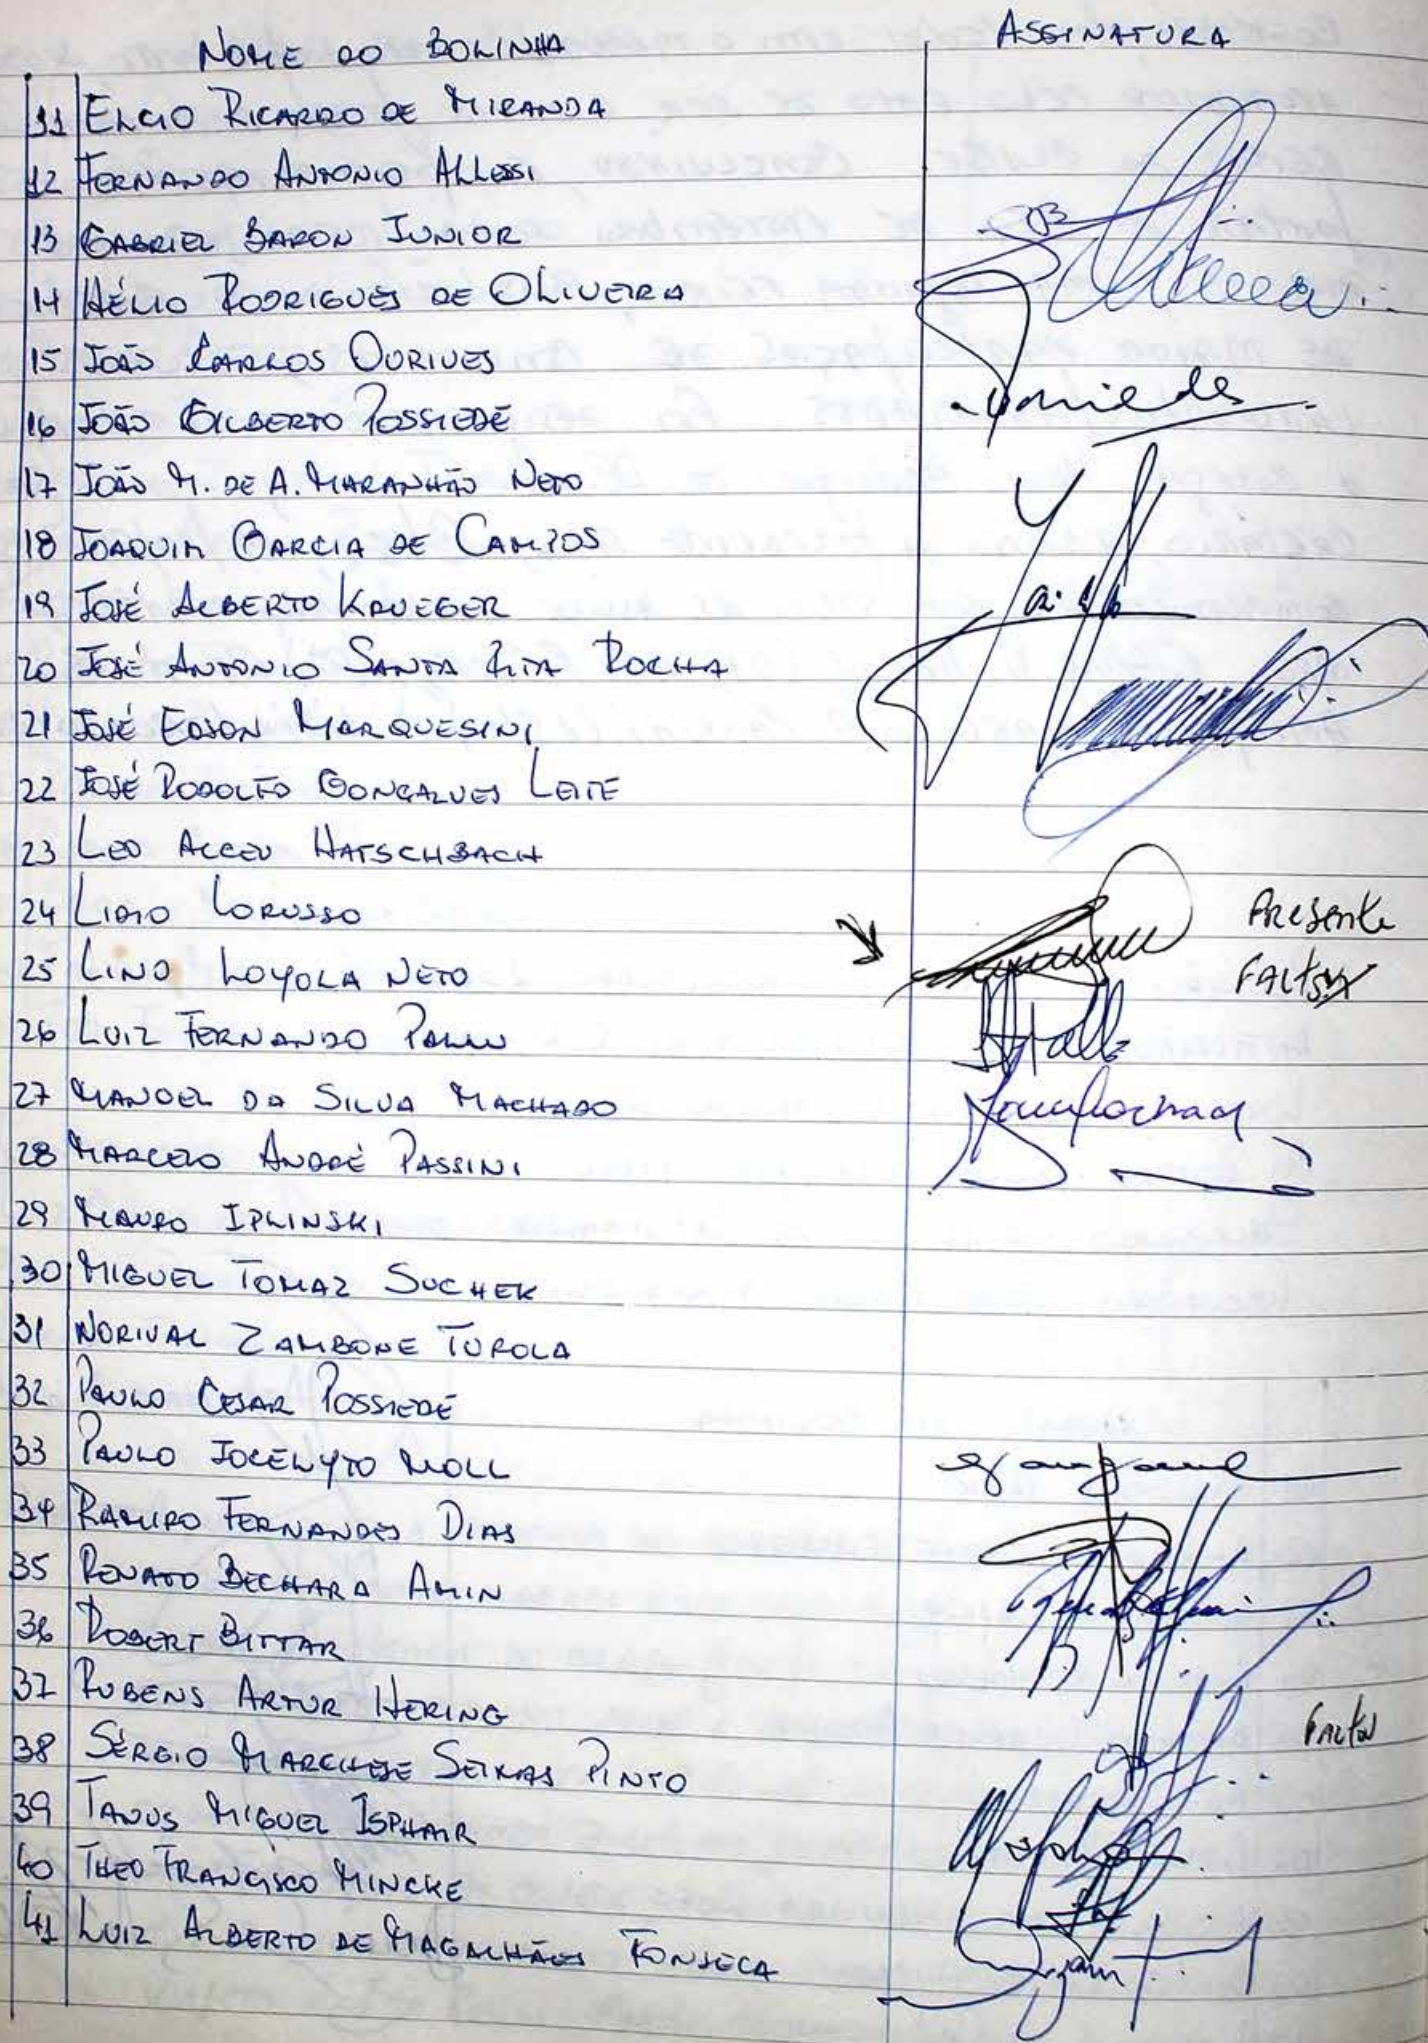 NOME DO BOLINHA ASSINATURA
11 ELCIO RICARDO DE MIRANDA
12 FERNANDO ANTONIO ALLESSI
13 GABRIEL BARON JUNIOR
14 HÉLIO RODRIGUES DE OLIVEIRA
15 JOÃO CARLOS OURIVES
16 JOÃO GILBERTO POSSIEDE
17 JOÃO M. DE A. MARANHÃO NETO
18 JOAQUIM GARCIA DE CAMPOS
19 JOSÉ ALBERTO KRUEGER
20 JOSÉ ANTONIO SANTA RITA ROCHA
21 JOSÉ EDSON MARQUESINI
22 JOSÉ RODOLFO GONÇALVES LEITE
23 LEO ALCEU HATSCHBACH
24 LIDIO LORUSSO Presente
25 LINO LOYOLA NETO FALTOU
26 LUIZ FERNANDO PALLU
27 MANOEL DA SILVA MACHADO
28 MARCELO ANDRÉ PASSINI
29 MAURO IPLINSKI
30 MIGUEL TOMAZ SUCHEK
31 NORIVAL ZAMBONE TUROLA
32 PAULO CESAR POSSIEDE
33 PAULO JOCELYTO MOLL
34 RAMIRO FERNANDES DIAS
35 RENATO BECHARA AMIN
36 ROBERT BITTAR
37 RUBENS ARTUR HERING
38 SÉRGIO MARCHESE SEIXAS PINTO FALTOU
39 TANUS MIGUEL ISPHAIR
40 THEO FRANCISCO MINCKE
41 LUIZ ALBERTO DE MAGALHÃES FONSECA